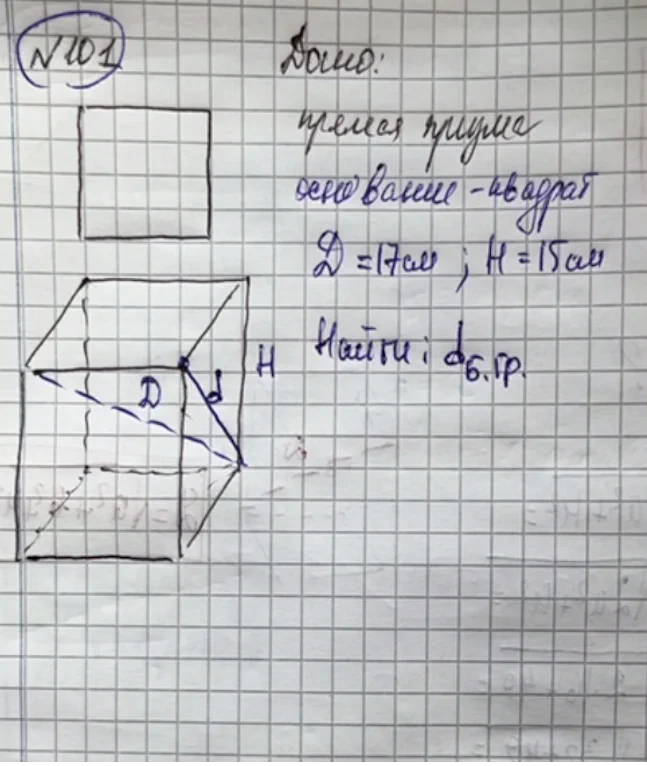 N101
Дано:
прямая призма
основание - квадрат
D = 17см ; H = 15см
Найти: d б.гр.
H
D
d